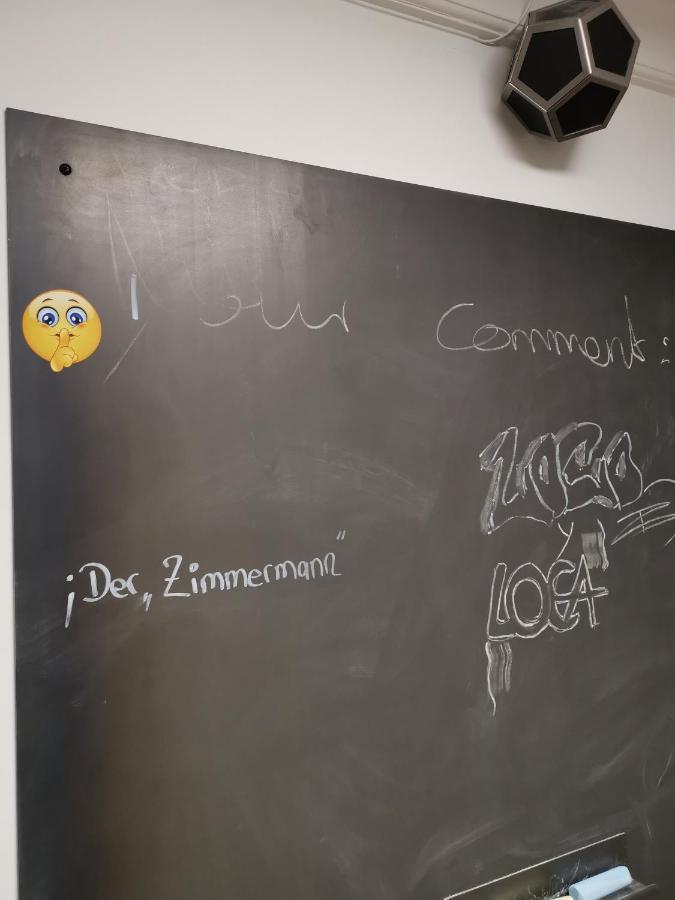 Your Comment:
LOCO
Y
LOCA
¡Der „Zimmermann“